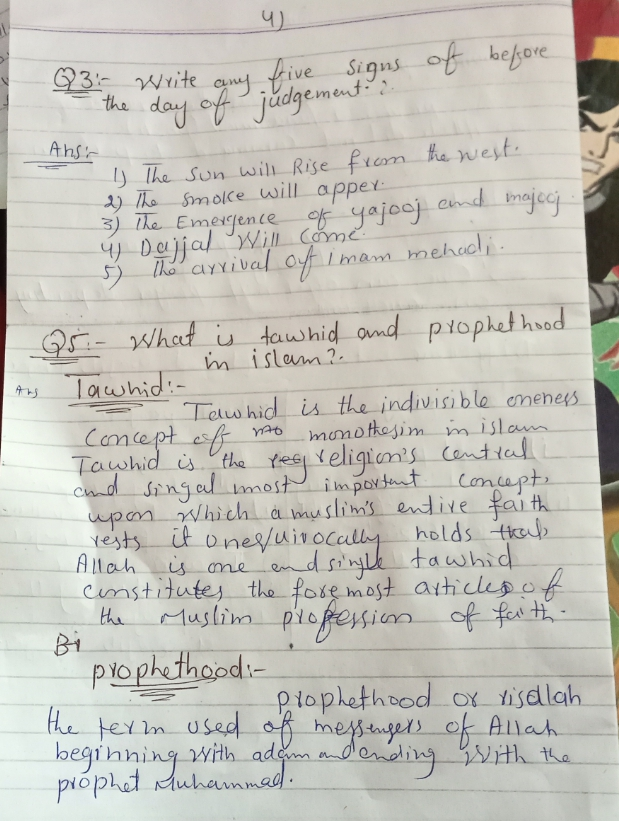 4)
Q3:- Write any five signs of before
the day of judgement:?
Ans:-
1) The Sun will Rise from the west.
2) The smoke will apper.
3) The Emergence of yajooj and majooj
4) Dajjal Will Come.
5) The arrival of imam mehadi.
Q5:- What is tawhid and prophethood
in islam?.
Ans Tawhid:-
Tawhid is the indivisible oneness
concept of monothesim in islam
Tawhid is the religion's central
and singal most important concept,
upon which a muslim's entire faith
rests it unequivocally holds that
Allah is one and single tawhid
constitutes the foremost articles of
the Muslim profession of faith.
Bi
prophethood:-
prophethood or risallah
the term used of messengers of Allah
beginning with adam and ending with the
prophet Muhammad.